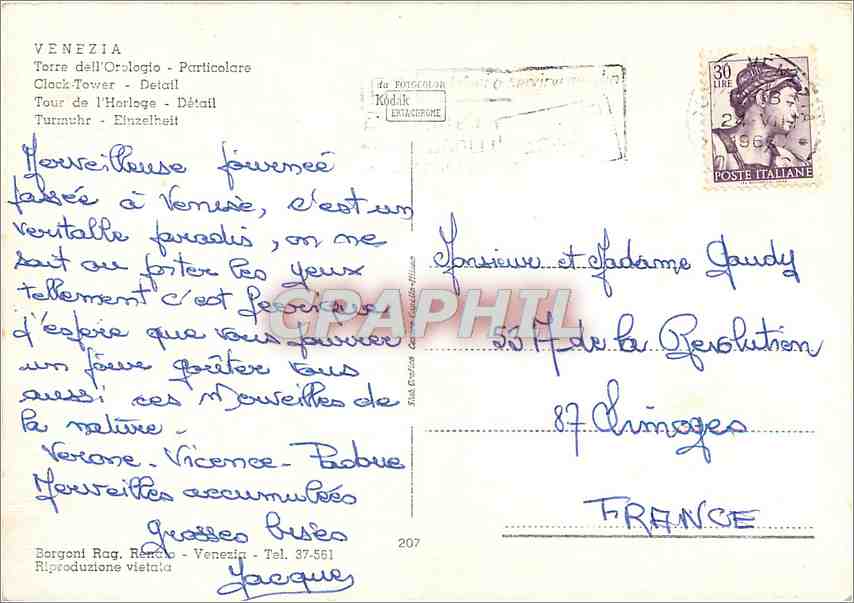 VENEZIA
Torre dell'Orologio - Particolare
Clock-Tower - Detail
Tour de l'Horloge - Détail
Turmuhr - Einzelheit
da FOTOCOLOR
Kodak
EKTACHROME
30
LIRE
POSTE ITALIANE
196
Merveilleuse journeé
passée à Venise, c'est un
veritable paradis, on ne
sait ou poter les yeux
tellement c'est feerique
j'espere que vous pourrez
un jour goûter vous
aussi ces Merveilles de
la nature -
Verone - Vicence - Padoue
Merveilles accumulées
grosses bises
Jacques
Monsieur et Madame Gaudy
de la Revolution
87 Limoges
FRANCE
CPAPHIL
Stab. Grafico Cesare Capello - Milano
207
Borgoni Rag. Renato - Venezia - Tel. 37-561
Riproduzione vietata